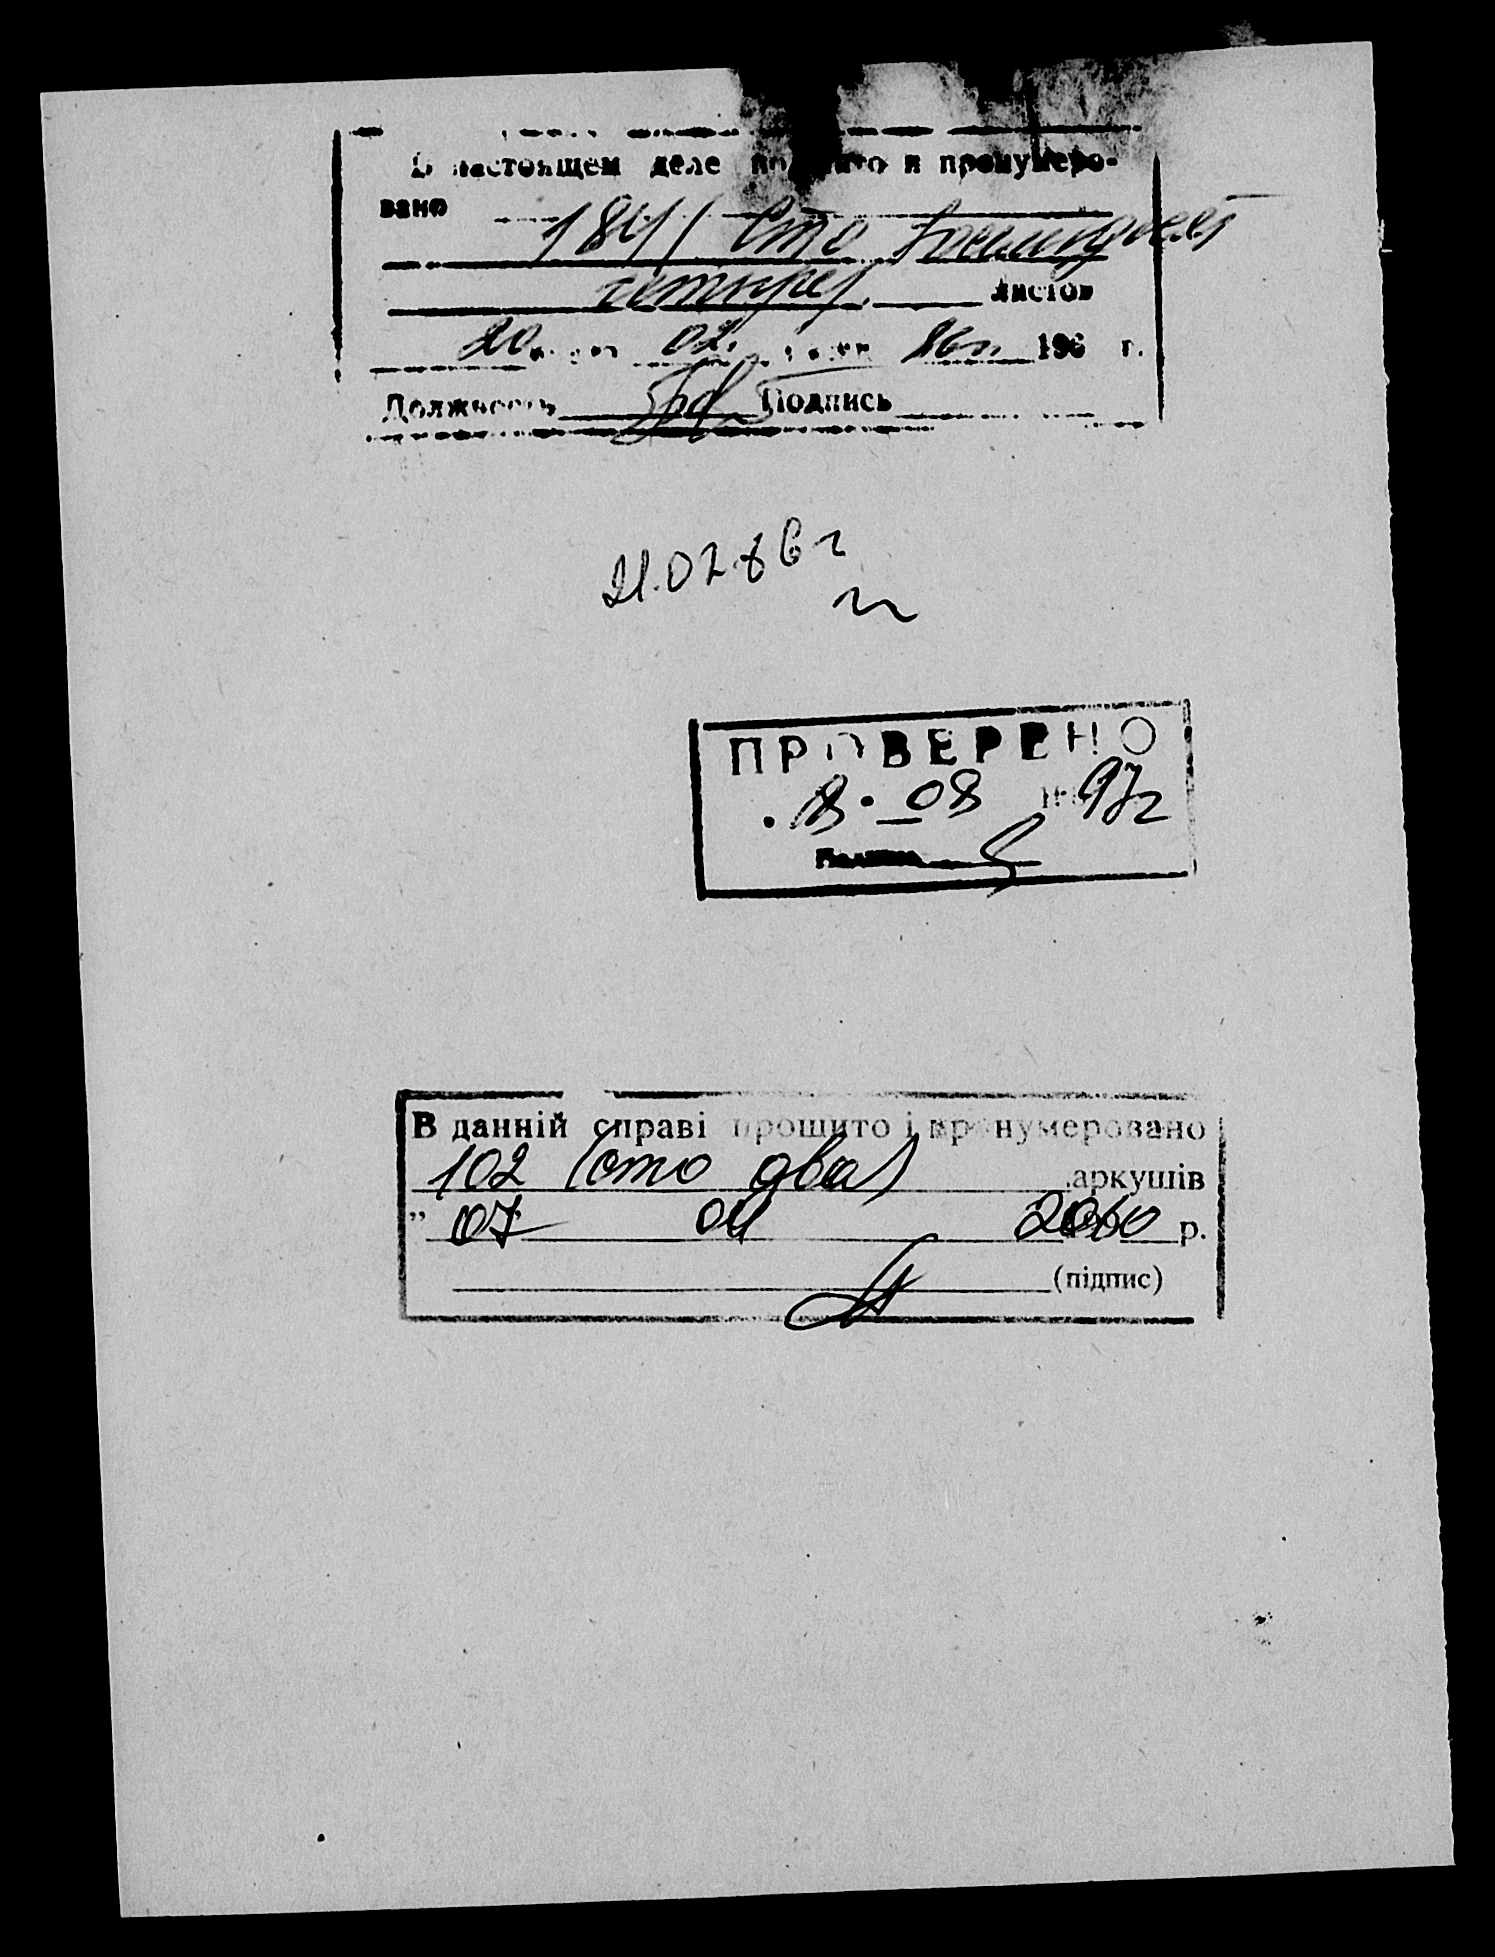 В настоящем деле подшито и пронумеро-
вано 184 / Сто восемдесят
четыре/ листов
20 02. 86 г. 196 г.
Должность Подпись
21.02.86 г
ПРОВЕРЕНО
18. 08 97г
Подпись
В данній справі прошито і пронумеровано
102 (сто два) аркушів
" 07 04 р.
(підпис)